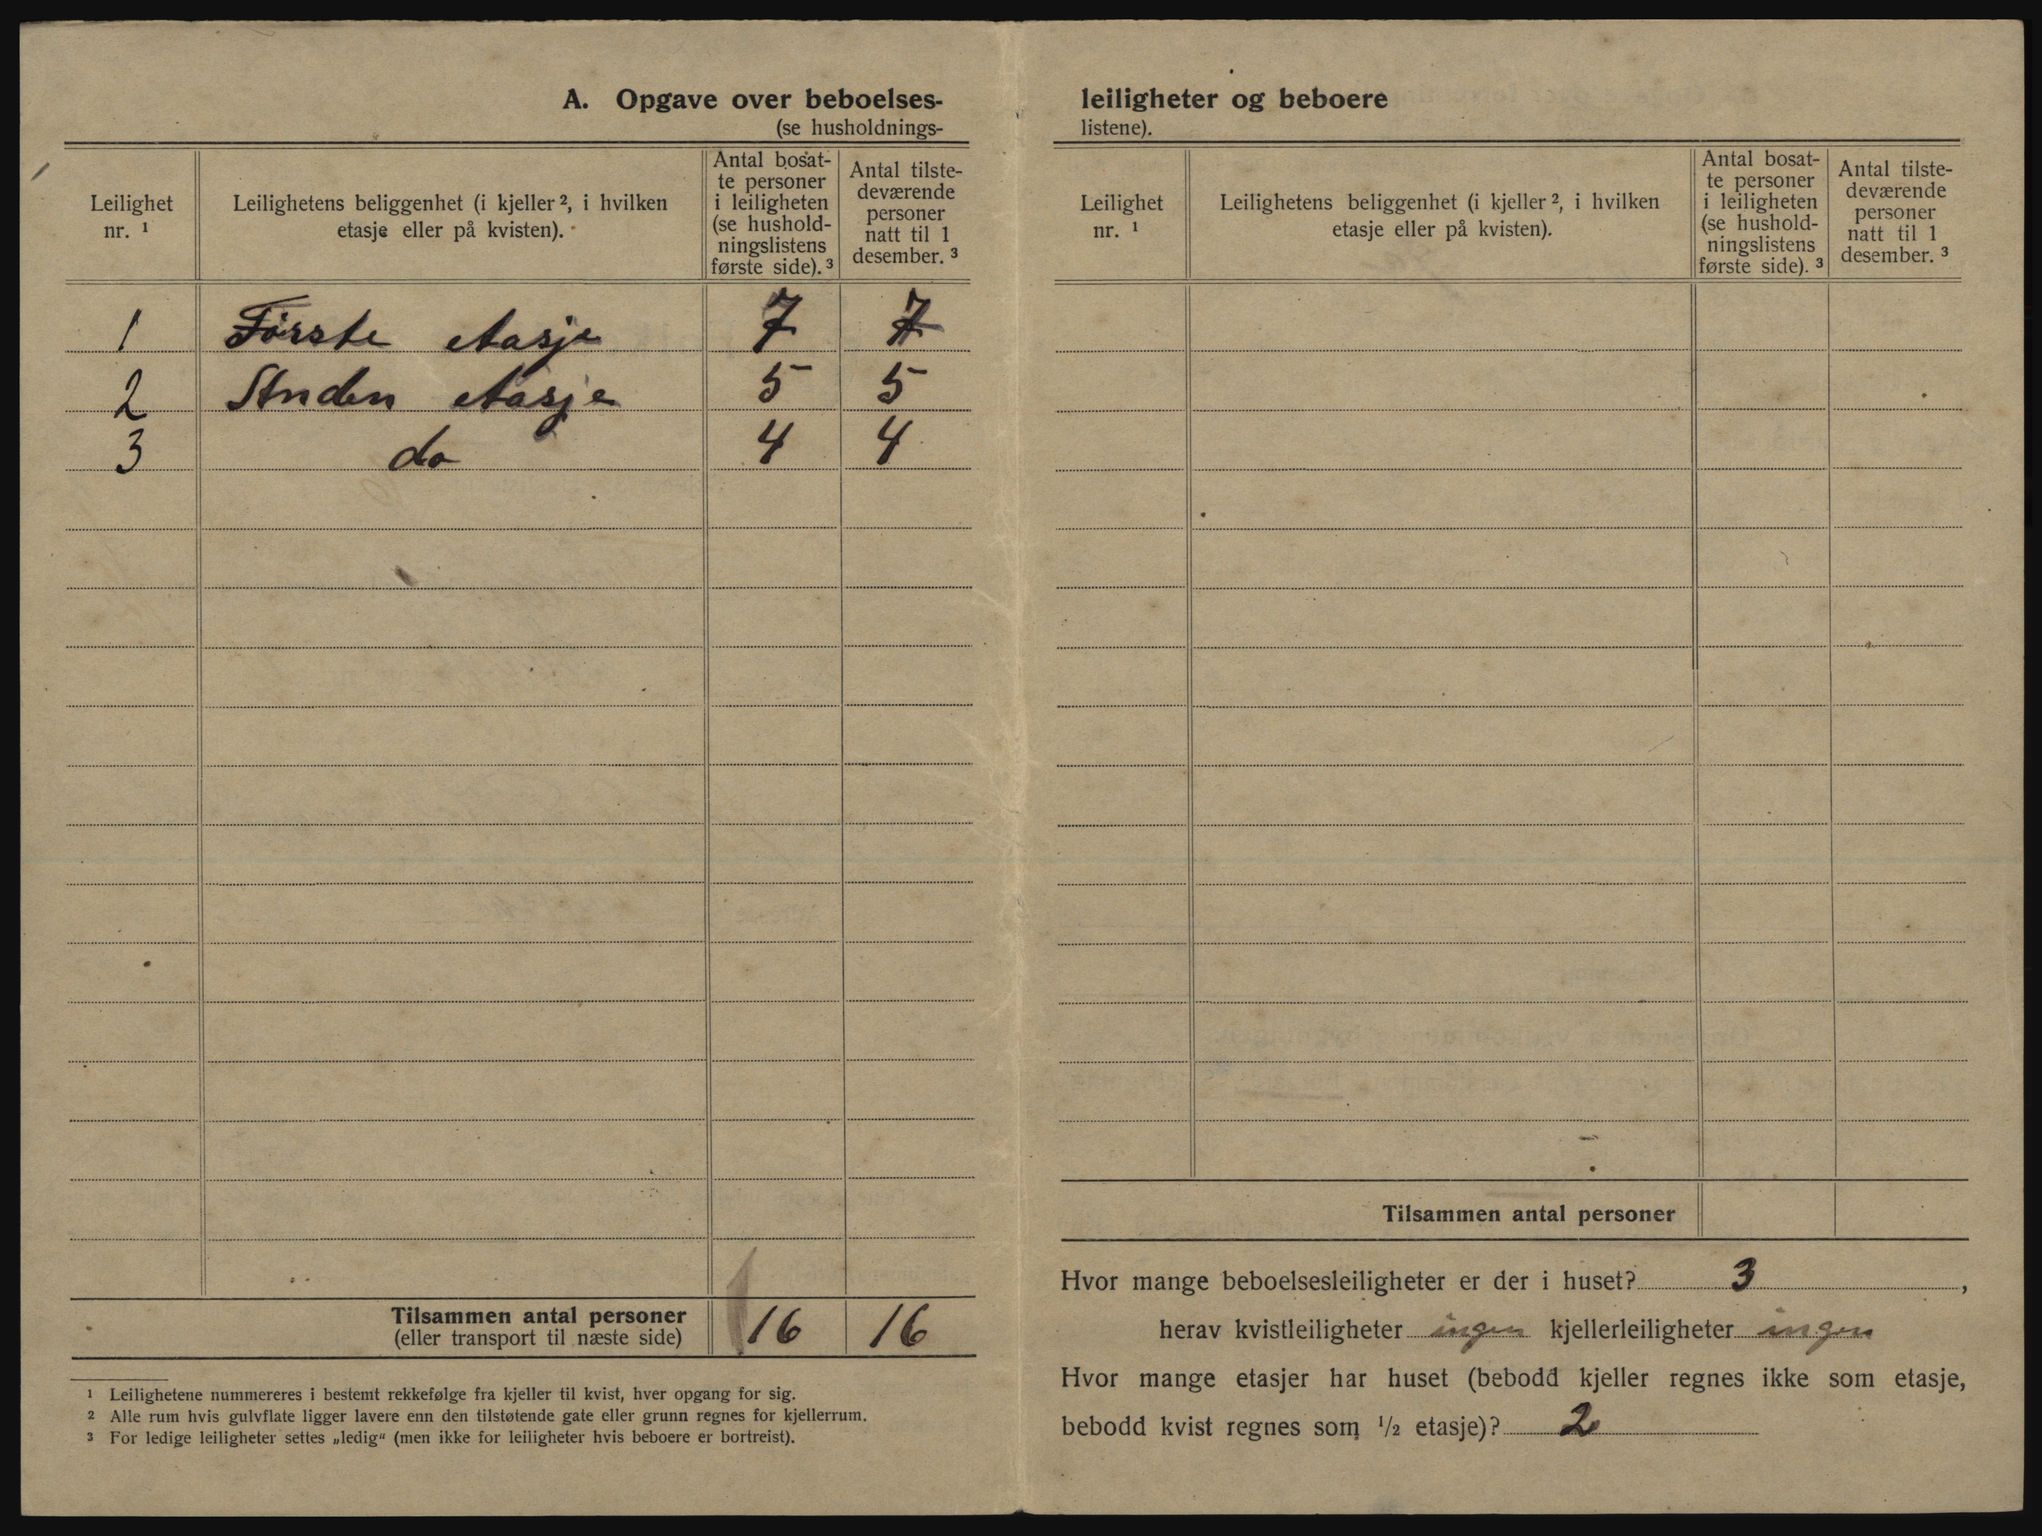 A. Opgave over beboelses-
(se husholdnings-
Leilighet
nr. ¹
Leilighetens beliggenhet (i kjeller ², i hvilken
etasje eller på kvisten).
Antal bosat-
te personer
i leiligheten
(se hushold-
ningslistens
første side). ³
Antal tilste-
deværende
personer
natt til 1
desember. ³
1 Første etasje 7 7
2 Anden etasje 5 5
3 do 4 4
Tilsammen antal personer 16 16
(eller transport til næste side)
¹ Leilighetene nummereres i bestemt rekkefølge fra kjeller til kvist, hver opgang for sig.
² Alle rum hvis gulvflate ligger lavere enn den tilstøtende gate eller grunn regnes for kjellerrum.
³ For ledige leiligheter settes „ledig“ (men ikke for leiligheter hvis beboere er bortreist).
leiligheter og beboere
listene).
Leilighet
nr. ¹
Leilighetens beliggenhet (i kjeller ², i hvilken
etasje eller på kvisten).
Antal bosat-
te personer
i leiligheten
(se hushold-
ningslistens
første side). ³
Antal tilste-
deværende
personer
natt til 1
desember. ³
Tilsammen antal personer
Hvor mange beboelsesleiligheter er der i huset? 3,
herav kvistleiligheter ingen kjellerleiligheter ingen
Hvor mange etasjer har huset (bebodd kjeller regnes ikke som etasje,
bebodd kvist regnes som ½ etasje)? 2